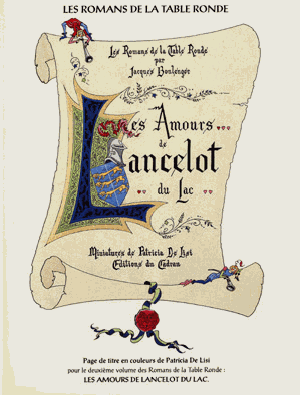 LES ROMANS DE LA TABLE RONDE
Les Romans de la Table Ronde
par
Jacques Boulenger
Les Amours...
de
Lancelot
du Lac
Miniatures de Patricia De Lisi
Editions du Cadran
Page de titre en couleurs de Patricia De Lisi
pour le deuxième volume des Romans de la Table Ronde :
LES AMOURS DE LANCELOT DU LAC.